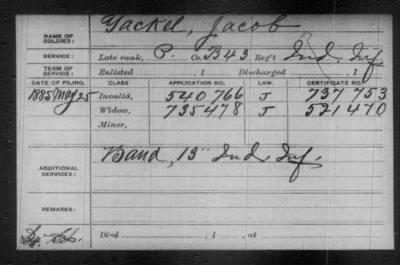 Yackel, Jacob
NAME OF SOLDIER:
SERVICE: Late rank, P. Co. B 43 Reg't Ind. Inf
TERM OF SERVICE: Enlisted , 1 Discharged , 1
DATE OF FILING. CLASS. APPLICATION NO. LAW. CERTIFICATE NO.
1885 May 25 Invalid, 540 766 J 737 753
Widow, 735478 J 521470
Minor,
ADDITIONAL SERVICES: Band, 13" Ind. Inf.
REMARKS:
Died , 1 , at